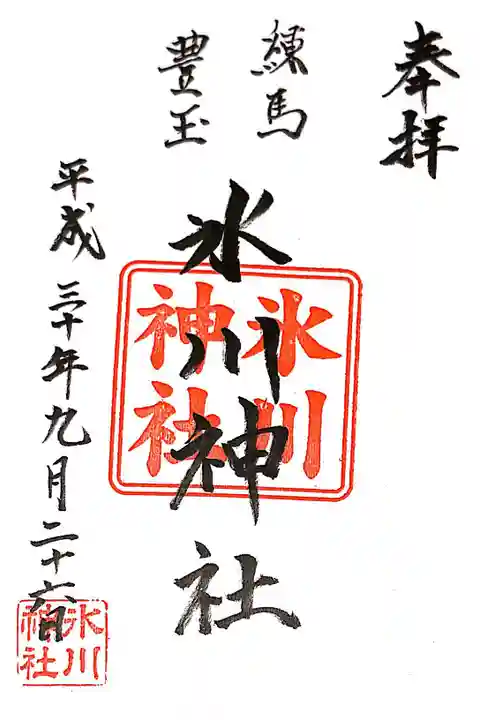 奉拝
練馬
豊玉
氷川神社
氷川
神社
平成三十年九月二十六日
氷川
神社